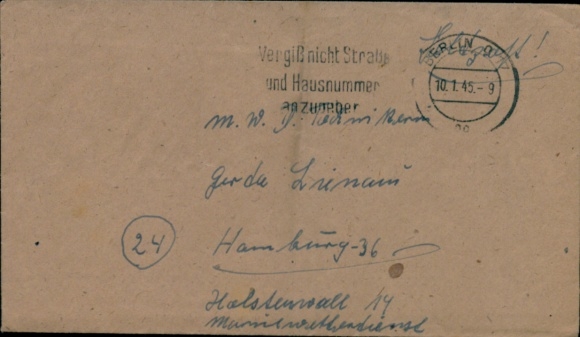 Feldpost!
Vergiß nicht Straße
und Hausnummer
anzugeben
BERLIN
10.1.45.-9
M. W. D. Technikerin
Gerda Lienau
24
Hamburg-36
Holstenwall 14
Marinewetterdienst